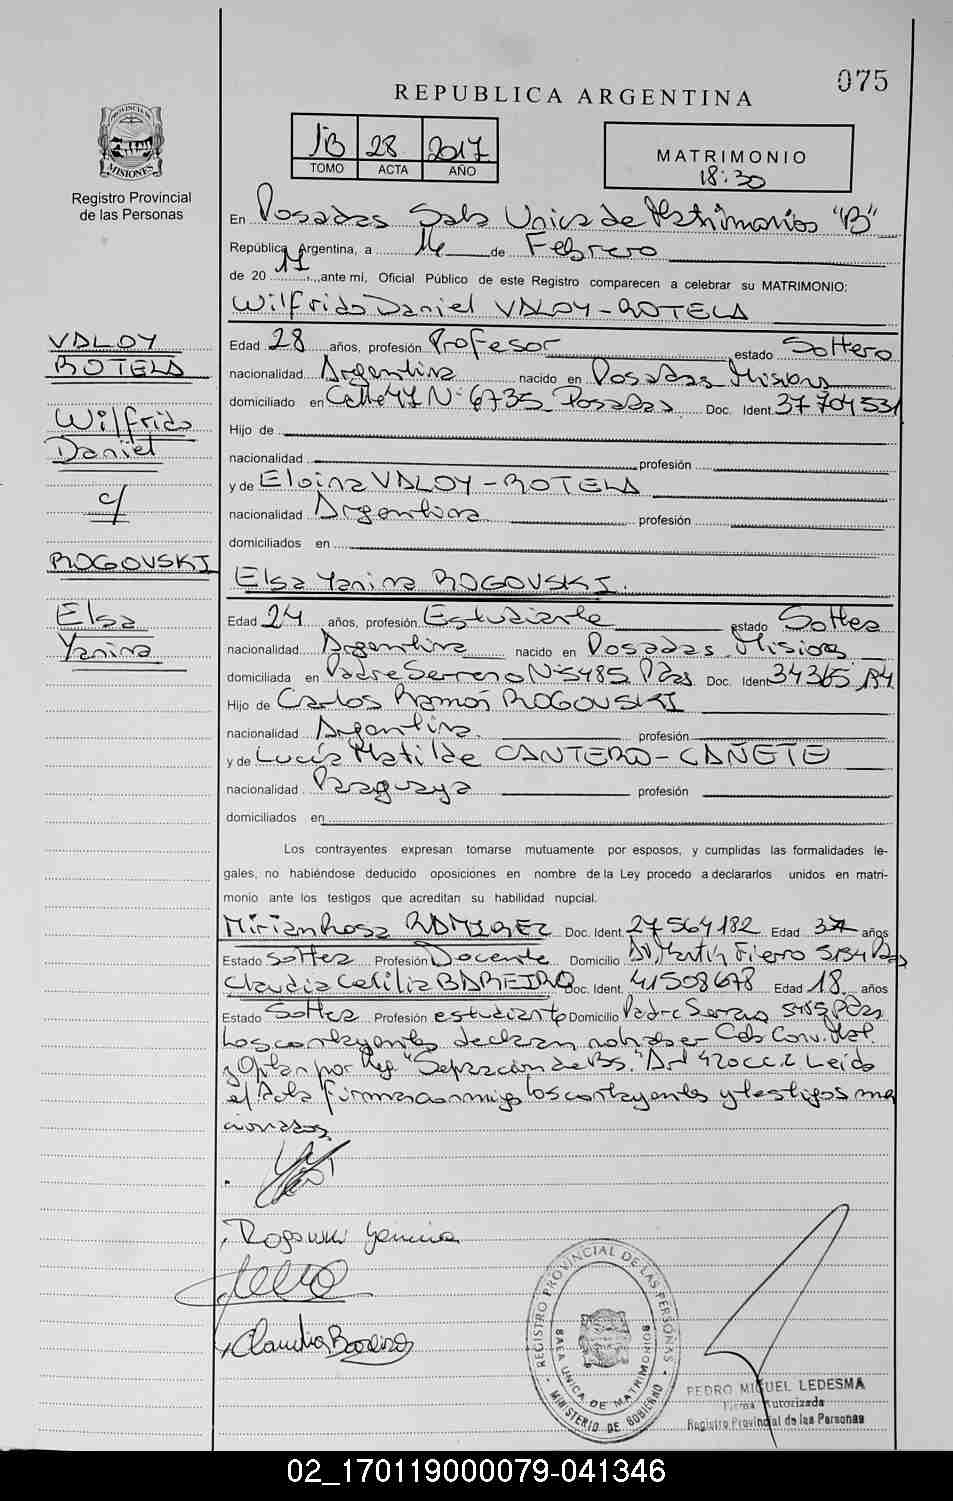 075
REPUBLICA ARGENTINA
PROVINCIA DE MISIONES
Registro Provincial
de las Personas
1B 28 2017
TOMO ACTA AÑO
MATRIMONIO
18:30
En Posadas Sala Unica de Matrimonios "B"
República Argentina, a 14 de Febrero
de 20 17, ante mi, Oficial Público de este Registro comparecen a celebrar su MATRIMONIO:
Wilfrido Daniel VALOY-ROTELA
VALOY
ROTELA
Wilfrido
Daniel
c/
ROGOVSKI
Elsa
Yanina
Edad 28 años, profesión Profesor estado Soltero
nacionalidad Argentina nacido en Posadas Misiones
domiciliado en Calle 47 N° 6735 Posadas Doc. Ident. 37704531
Hijo de
nacionalidad profesión
y de Eloina VALOY-ROTELA
nacionalidad Argentina profesión
domiciliados en
Elsa Yanina ROGOVSKI.
Edad 24 años, profesión Estudiante estado Soltera
nacionalidad Argentina nacido en Posadas Misiones
domiciliada en Padre Serrano N° 5485 Pdas Doc. Ident
Hijo de Carlos Ramón ROGOVSKI
nacionalidad Argentina. profesión
y de Lucía Matilde CANTERO-CAÑETE
nacionalidad Paraguaya profesión
domiciliados en
Los contrayentes expresan tomarse mutuamente por esposos, y cumplidas las formalidades le-
gales, no habiéndose deducido oposiciones en nombre de la Ley procedo a declararlos unidos en matri-
monio ante los testigos que acreditan su habilidad nupcial.
Mirian Rosa RAMIREZ Doc. Ident. 27564182 Edad 37 años
Estado Soltera Profesión Docente Domicilio Av Martín Fierro 5154 Pdas
Claudia Cecilia BAREIRO Doc. Ident. 41508678 Edad 18 años
Estado Soltera Profesión estudiante Domicilio Padre Serrano 5485 Pdas
Los contrayentes declaran no haber Celeb Conv. Mat.
y Optan por Reg. "Separación de Bs." Art 420 CC. Leída
el Acta firman conmigo los contrayentes y testigos men
cionados
Rogovski Yanina
Claudia Bareiro
REGISTRO PROVINCIAL DE LAS PERSONAS
SALA UNICA DE MATRIMONIOS
MINISTERIO DE GOBIERNO
PEDRO MIGUEL LEDESMA
Firma Autorizada
Registro Provincial de las Personas
02_170119000079-041346